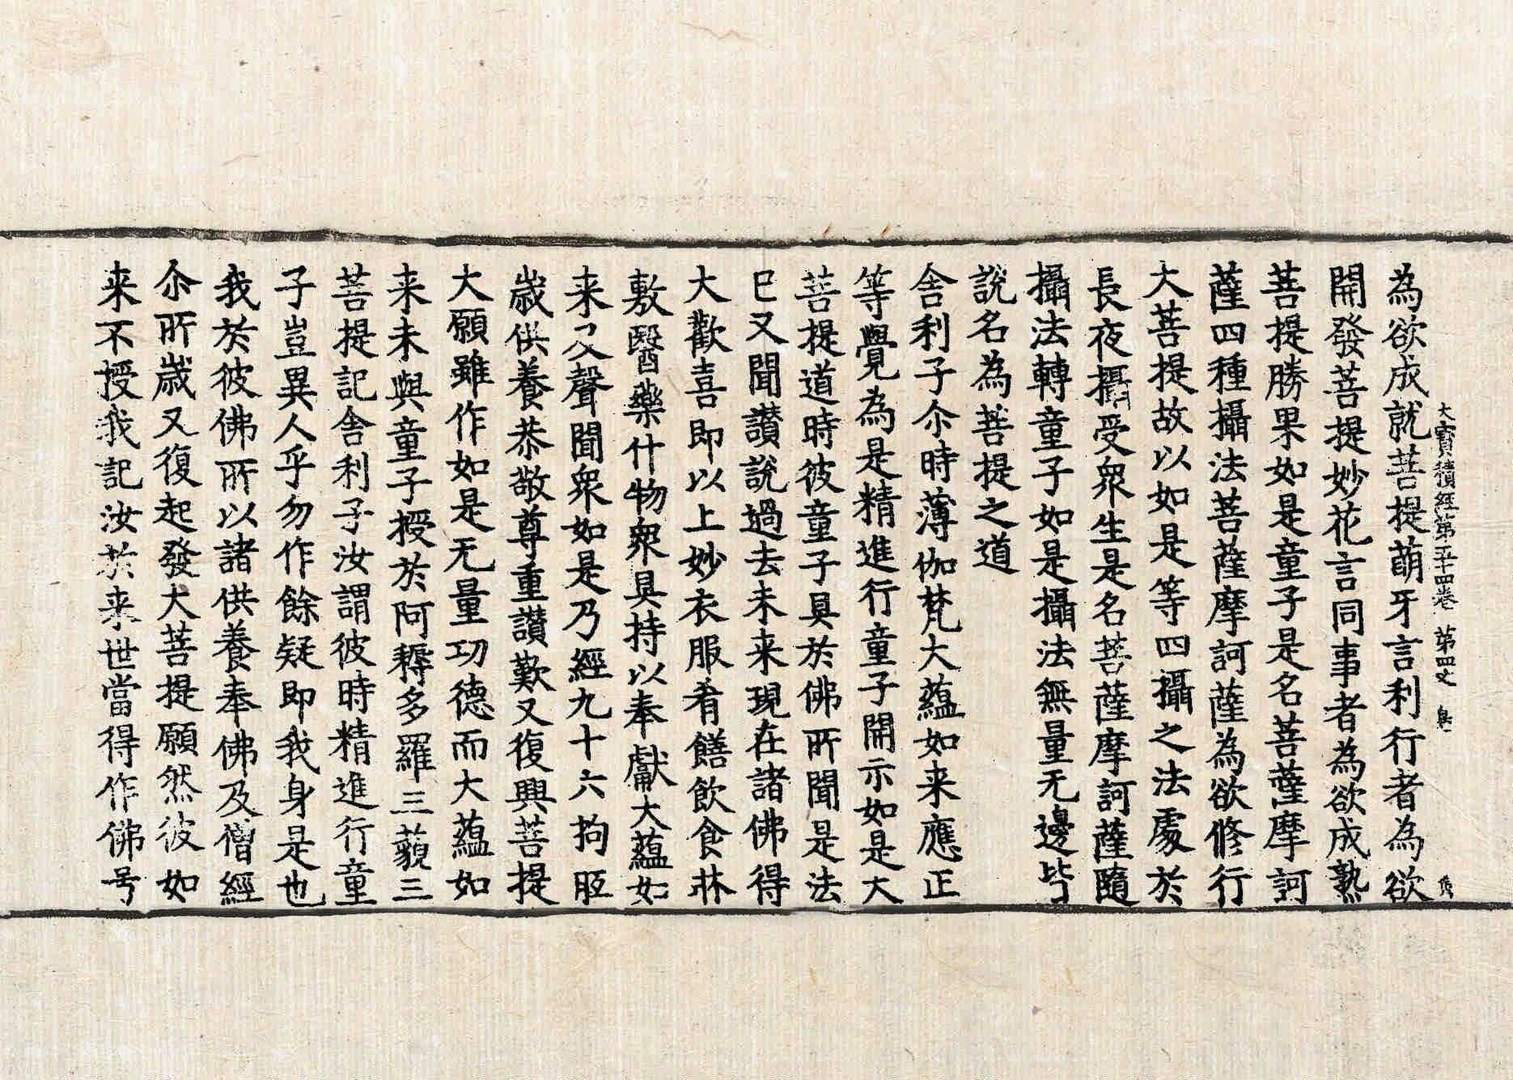 大寶積經第五十四卷 第四丈 鳥
為欲成就菩提萌牙言利行者為欲
開發菩提妙花言同事者為欲成熟
菩提勝果如是童子是名菩薩摩訶
薩四種攝法菩薩摩訶薩為欲修行
大菩提故以如是等四攝之法處於
長夜攝受眾生是名菩薩摩訶薩隨
攝法轉童子如是攝法無量无邊皆
說名為菩提之道
舍利子尒時薄伽梵大蘊如来應正
等覺為是精進行童子開示如是大
菩提道時彼童子具於佛所聞是法
已又聞讚說過去未来現在諸佛得
大歡喜即以上妙衣服肴饍飲食牀
敷醫藥什物眾具持以奉獻大蘊如
来及聲聞眾如是乃經九十六拘胝
歲供養恭敬尊重讚歎又復興菩提
大願雖作如是无量功德而大蘊如
来未與童子授於阿耨多羅三藐三
菩提記舍利子汝謂彼時精進行童
子豈異人乎勿作餘疑即我身是也
我於彼佛所以諸供養奉佛及僧經
尒所歲又復起發大菩提願然彼如
来不授我記汝於来世當得作佛号